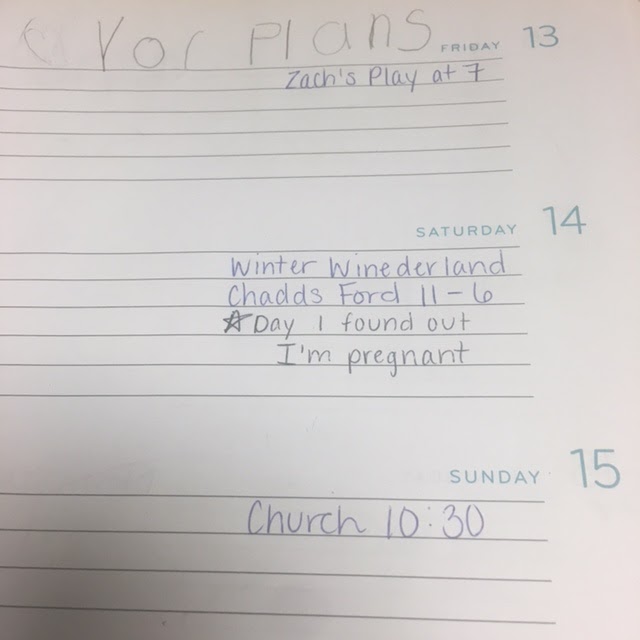 Yor Plans
FRIDAY 13
Zach's Play at 7
SATURDAY 14
Winter Winederland
Chadds Ford 11-6
☆ Day I found out
I'm pregnant
SUNDAY 15
Church 10:30